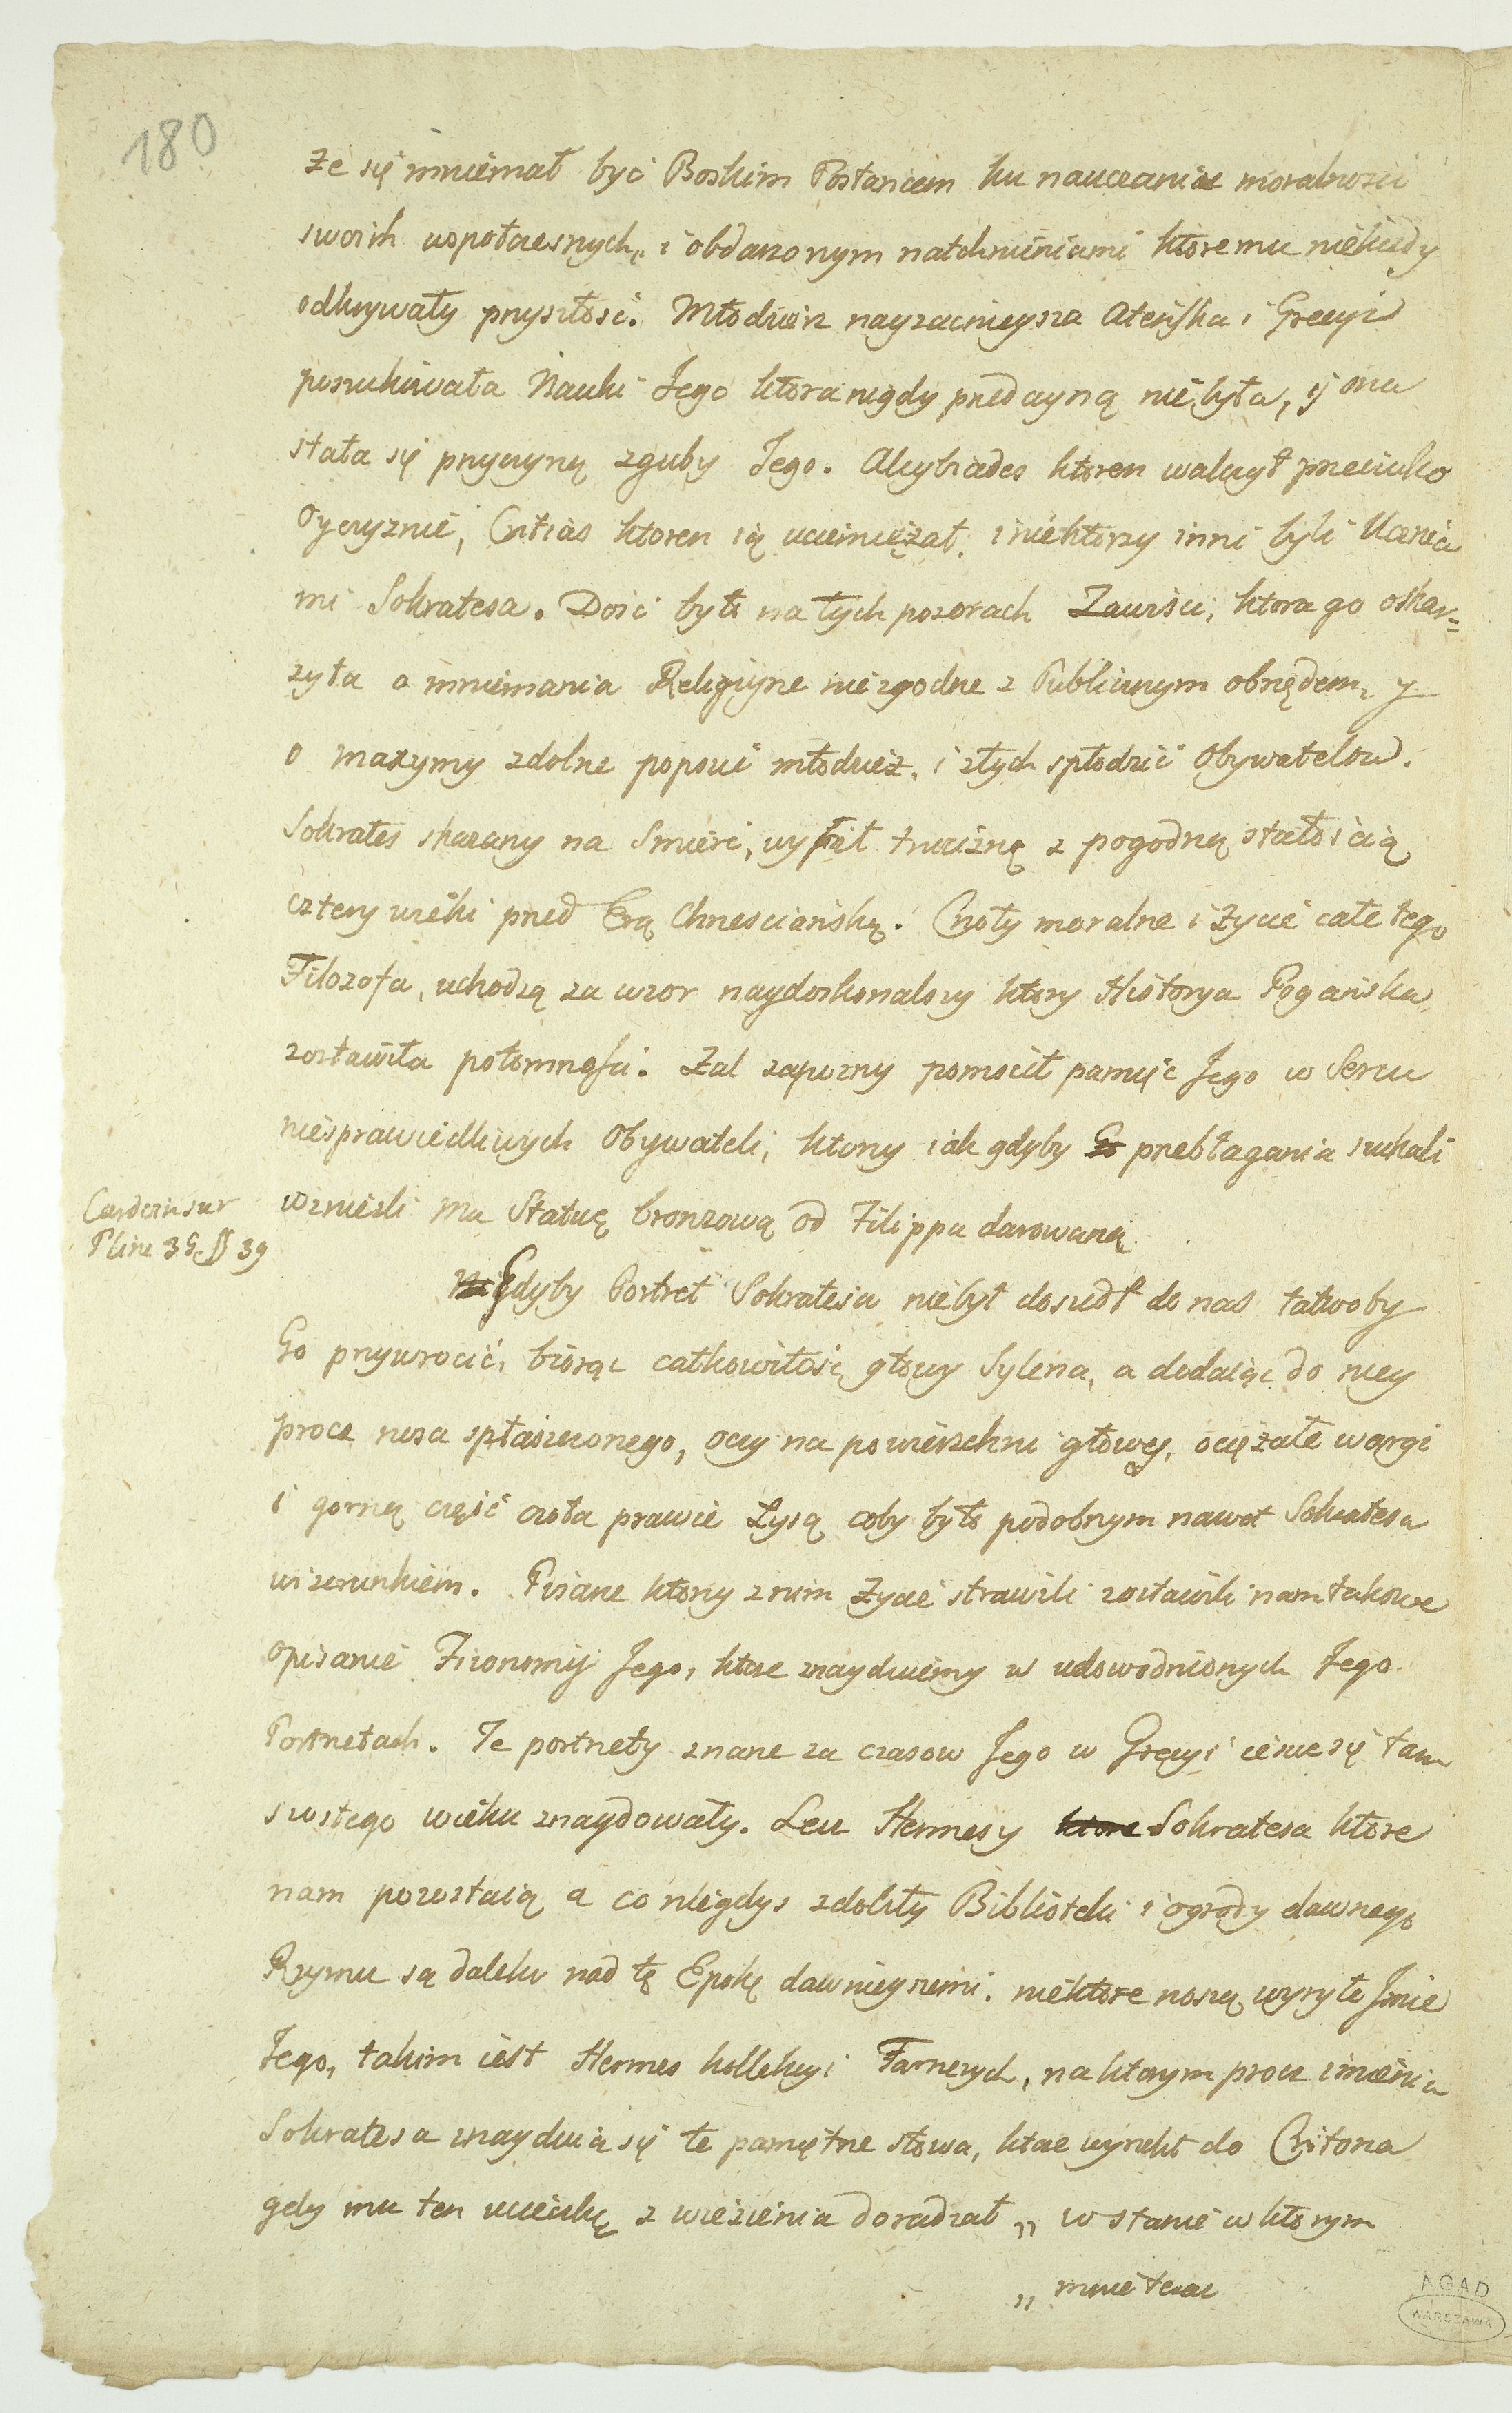 180
że się mniemał być Boskim Posłańcem ku nauczaniu moralności
swoich wspołczesnych, i obdarzonym natchnieniami ktoremu niekiedy
odkrywały przyszłość. Młodzież nayzacnieysza Ateńska i Grecyi
poszukiwała Nauki Jego ktora nigdy przedayną nie była, y ona
stała się przyczyną zguby Jego. Alcybiades ktoren walczył przeciwko
Oyczyznie, Critias ktoren ią uciemiężał, i niektorzy inni byli Ucznia
mi Sokratesa. Dość było na tych pozorach Zawiści, ktora go oskar=
żyła o mniemania Religiyne niezgodne z Publicznym obrzędem, y
o maxymy zdolne popsuć młodzież, i złych spłodzić Obywatelow.
Sokrates skazany na Smierć, wypił truciznę z pogodną stałością
cztery wieki przed Erą Chrześciańską. Cnoty moralne i życie całe tego
Filozofa, uchodzą za wzor naydoskonalszy ktory Historya Pogańska
zostawiła potomności. Żal zapozny pomścił pamięć Jego w Sercu
niesprawiedliwych Obywateli, ktorzy iak gdyby Go przebłagania szukali
wznieśli mu Statuę bronzową od Filippa darowaną.
Casdern sur
Pline 35. § 39
Gdyby Portret Sokratesa niebył doszedł do nas łatwoby
Go przywrocić, biorąc całkowitość głowy Sylena, a dodaiąc do niey
procz nosa spłaszczonego, oczy na powierzchni głowy, ociężałe wargi
i gorną część czoła prawie Łysą coby było podobnym nawet Sokratesa
wizerunkiem. Pisarze ktorzy z nim życie strawili zostawili nam takowe
opisanie Fizonomij Jego, ktore znayduiemy w udowodnionych Jego
Portretach. Te portrety znane za czasow Jego w Grecyi ieszcze się tam
szostego wieku znaydowały. Lecz Hermesy ktore Sokratesa ktore
nam pozostaią a co niegdys zdobiły Biblioteki i ogrody dawnego
Rzymu są daleko nad tę Epokę dawnieyszemi. niektore noszą wyryte Jmie
Jego, takim iest Hermes kollekcyi Farnezych, na ktorym procz imienia
Sokratesa znayduią się te pamiętne słowa, ktore wyrzekł do Critona
gdy mu ten ucieczkę z więzienia doradzał „ w stanie w ktorym
„ mnie teraz
AGAD
WARSZAWA